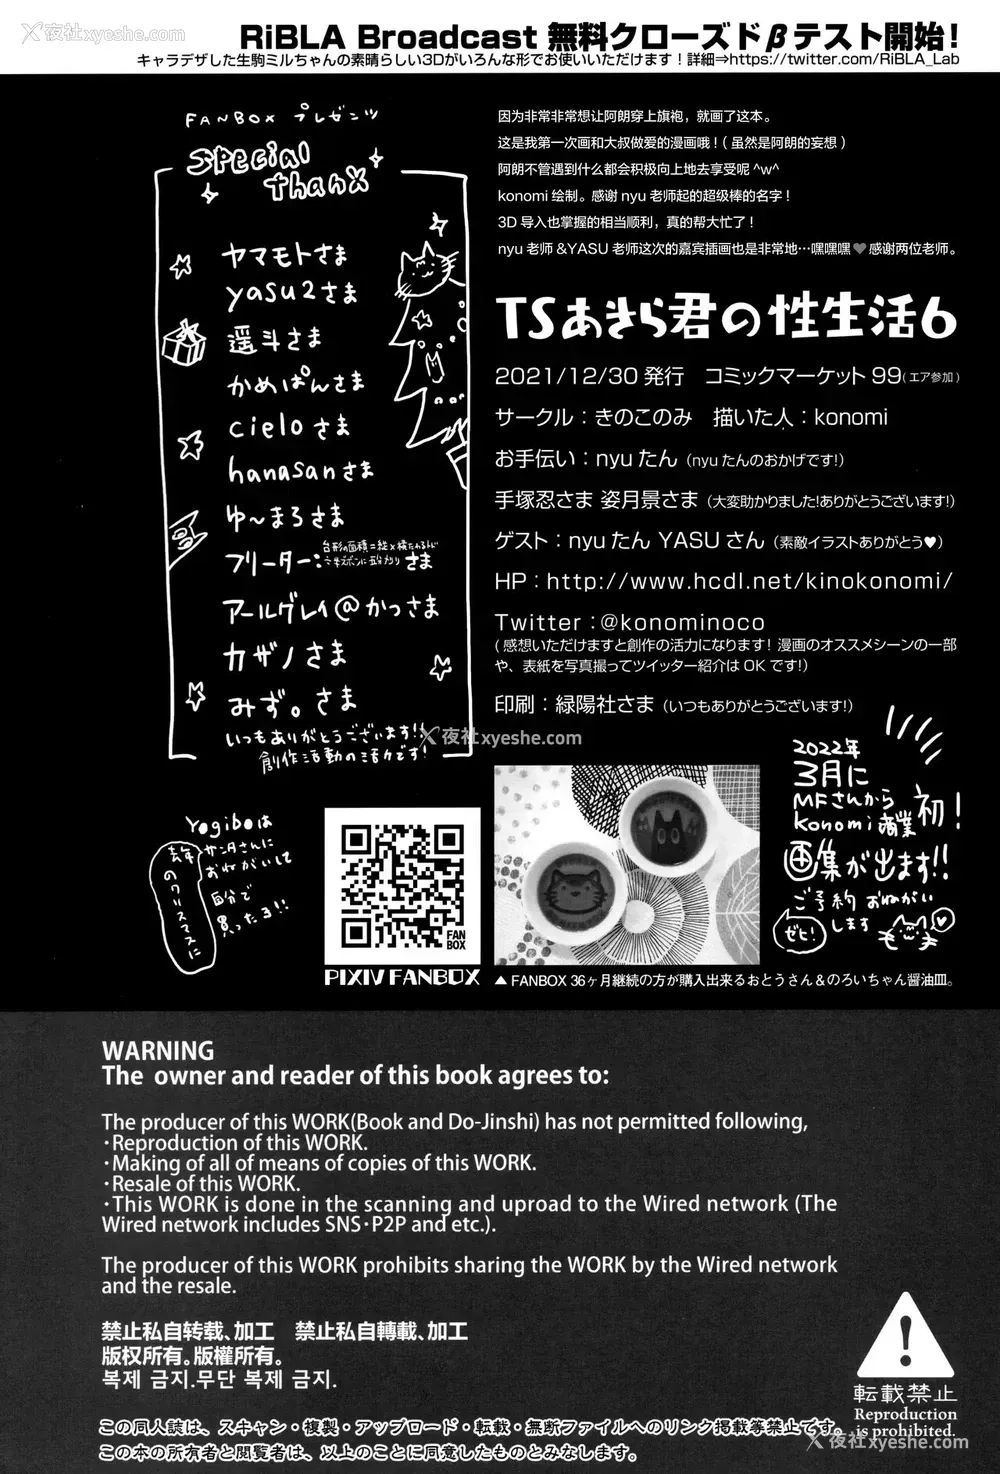 夜社xyeshe.com
RiBLA Broadcast 無料クローズドβテスト開始！
キャラデザした生駒ミルちゃんの素晴らしい3Dがいろんな形でお使いいただけます！詳細⇒https://twitter.com/RiBLA_Lab
FANBOX プレゼンツ
special
thanX
ヤマモトさま
yasu2さま
遥斗さま
かめぱんさま
cieloさま
hanasanさま
ゆ〜まろさま
フリーター：台形の面積＝縦×横
さま
アールグレイ@かっさま
カザノさま
みず。さま
いつもありがとうございます!!
創作活動の活力です！
Yogiboは
サンタさんに
おねがいして
自分で
買ったよ!!
去年
のクリスマスに
FAN
BOX
PIXIV FANBOX
因为非常非常想让阿朗穿上旗袍，就画了这本。
这是我第一次画和大叔做爱的漫画哦！（虽然是阿朗的妄想）
阿朗不管遇到什么都会积极向上地去享受呢 ^w^
konomi 绘制。感谢 nyu 老师起的超级棒的名字！
3D 导入也掌握的相当顺利，真的帮大忙了！
nyu 老师 &YASU 老师这次的嘉宾插画也是非常地…嘿嘿嘿♥感谢两位老师。
TSあきら君の性生活6
2021/12/30 発行　コミックマーケット 99（エア参加）
サークル：きのこのみ　描いた人：konomi
お手伝い：nyuたん（nyuたんのおかげです!）
手塚忍さま 姿月景さま（大変助かりました!ありがとうございます!）
ゲスト：nyuたん YASUさん（素敵イラストありがとう♥）
HP：http://www.hcdl.net/kinokonomi/
Twitter：@konominoco
(感想いただけますと創作の活力になります！漫画のオススメシーンの一部
や、表紙を写真撮ってツイッター紹介は OK です!)
印刷：緑陽社さま（いつもありがとうございます!）
夜社xyeshe.com
2022年
3月に
MFさんから
konomi商業初！
画集が出ます!!
ご予約おねがい
します
ぜひ！
▲FANBOX 36ヶ月継続の方が購入出来るおとうさん＆のろいちゃん醤油皿。
WARNING
The owner and reader of this book agrees to:
The producer of this WORK(Book and Do-Jinshi) has not permitted following,
・Reproduction of this WORK.
・Making of all of means of copies of this WORK.
・Resale of this WORK.
・This WORK is done in the scanning and uproad to the Wired network (The
Wired network includes SNS・P2P and etc.).
The producer of this WORK prohibits sharing the WORK by the Wired network
and the resale.
禁止私自转载、加工　禁止私自轉載、加工
版权所有。版權所有。
복제 금지.무단 복제 금지.
この同人誌は、スキャン・複製・アップロード・転載・無断ファイルへのリンク掲載等禁止です。
この本の所有者と閲覧者は、以上のことに同意したものとみなします。
転載禁止
Reproduction
is prohibited.
夜社xyeshe.com